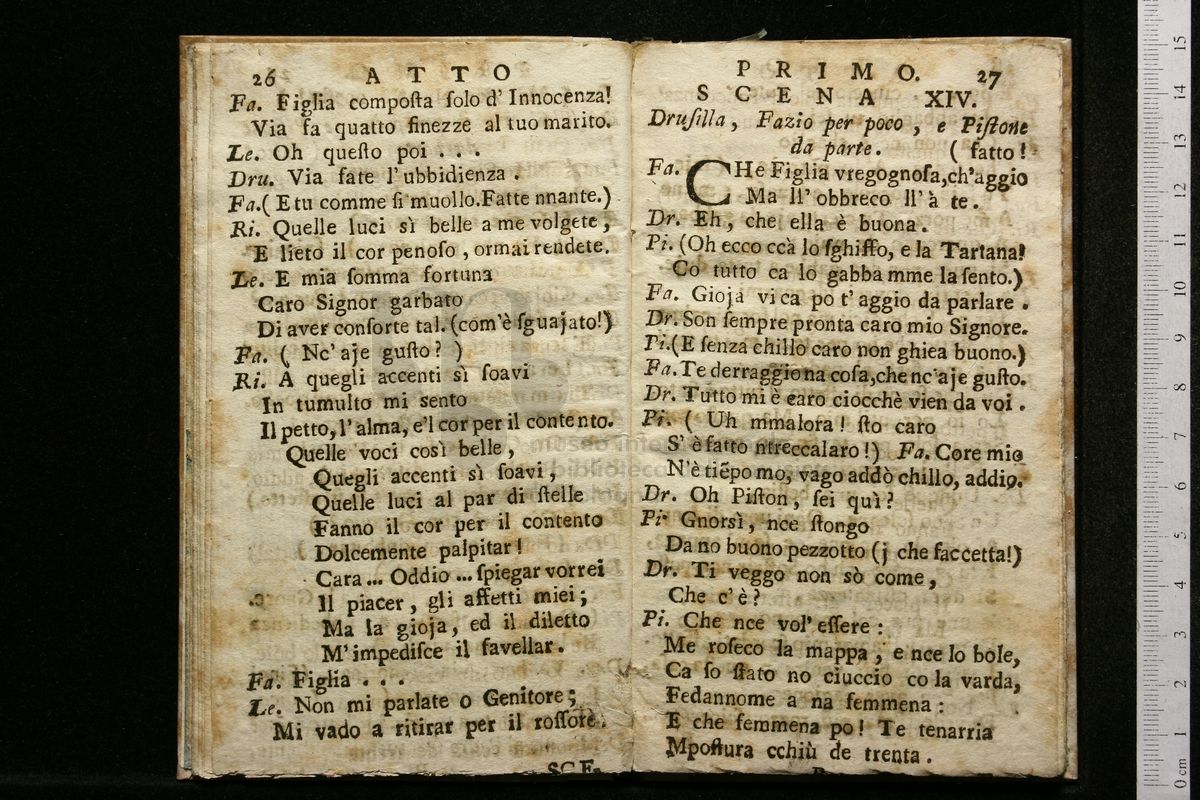 26 ATTO
Fa. Figlia compoſta ſolo d' Innocenza!
Via fa quatto finezze al tuo marito.
Le. Oh queſto poi . . .
Dru. Via fate l' ubbidienza .
Fa.( E tu comme ſi muollo.Fatte nnante.)
Ri. Quelle luci sì belle a me volgete ,
E lieto il cor penoſo , ormai rendete.
Le. E mia ſomma fortuna
Caro Signor garbato
Di aver conſorte tal. (com'è ſguajato!)
Fa. ( Nc' aje guſto? )
Ri. A quegli accenti sì ſoavi
In tumulto mi sento
Il petto, l' alma, e'l cor per il contento.
Quelle voci così belle ,
Quegli accenti sì ſoavi ,
Quelle luci al par di ſtelle
Fanno il cor per il contento
Dolcemente palpitar !
Cara ... Oddio ... ſpiegar vorrei
Il piacer , gli affetti miei ;
Ma la gioja , ed il diletto
M' impediſce il favellar .
Fa. Figlia . . .
Le. Non mi parlate o Genitore ;
Mi vado a ritirar per il roſſore.
SCE-
PRIMO. 27
SCENA XIV.
Druſilla , Fazio per poco , e Piſtone
da parte. ( fatto !
Fa. CHe Figlia vregognoſa,ch'aggio
Ma ll' obbreco ll' à te .
Dr. Eh , che ella è buona .
Pi. (Oh ecco ccà lo ſghiffo, e la Tartana!
Co tutto ca lo gabba mme la ſento.)
Fa. Gioja vi ca po t' aggio da parlare .
Dr. Son ſempre pronta caro mio Signore.
Pi.(E ſenza chillo caro non ghiea buono.)
Fa. Te derraggio na coſa,che nc'aje guſto.
Dr. Tutto mi è caro ciocchè vien da voi .
Pi. ( Uh mmalora ! ſto caro
S' è fatto ntreccalaro !) Fa. Core mio
N'è tiēpo mo, vago addò chillo, addio.
Dr. Oh Piſton , ſei quì ?
Pi. Gnorsì , nce ſtongo
Da no buono pezzotto (j che faccetta!)
Dr. Ti veggo non sò come ,
Che c' è ?
Pi. Che nce vol' eſſere :
Me roſeco la mappa , e nce lo bole,
Ca ſo ſtato no ciuccio co la varda,
Fedannome a na femmena :
E che femmena po ! Te tenarria
Mpoſtura cchiù de trenta .